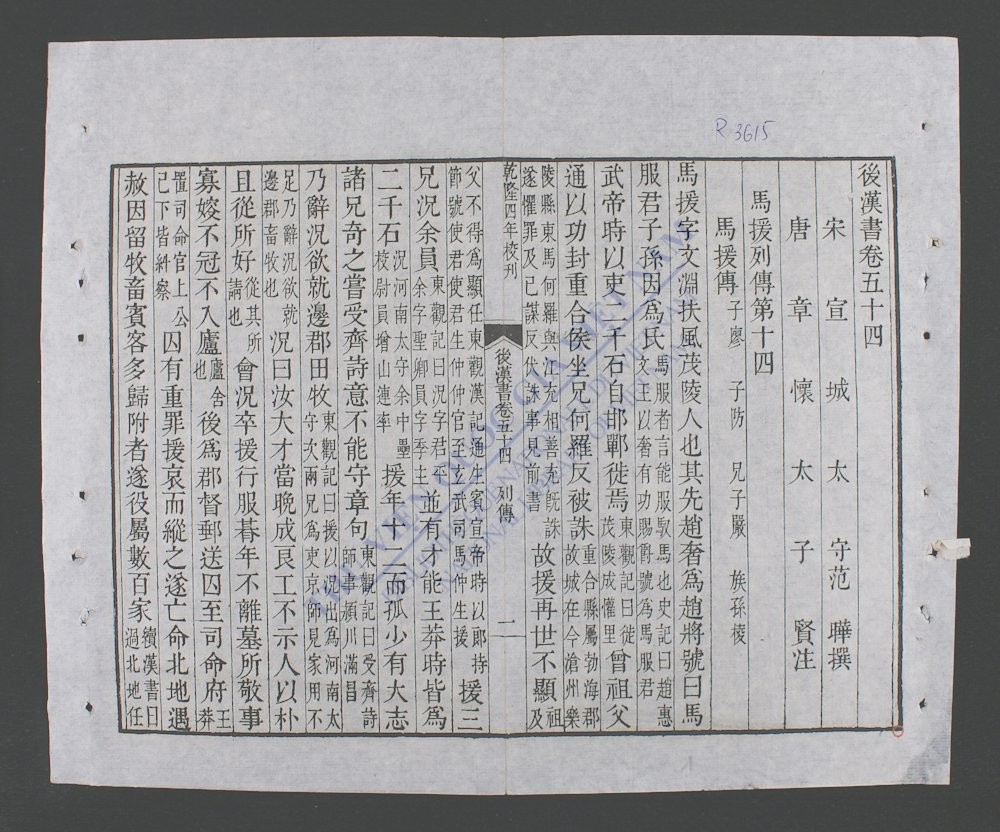 R 3615
後漢書卷五十四
宋宣城太守范曄撰
唐章懷太子賢注
馬援列傳第十四
馬援傳 子廖 子防 兄子嚴 族孫棱
馬援字文淵扶風茂陵人也其先趙奢爲趙將號曰馬
服君子孫因爲氏馬服者言能服馭馬也史記曰趙惠文王以奢有功賜爵號爲馬服君
武帝時以吏二千石自邯鄲徙焉東觀記曰徙茂陵成懽里曾祖父
通以功封重合侯坐兄何羅反被誅重合縣屬勃海郡故城在今滄州樂
陵縣東馬何羅與江充相善充旣誅遂懼罪及已謀反伏誅事見前書故援再世不顯祖及
乾隆四年校刊
後漢書卷五十四 列傳 一
父不得爲顯任東觀漢記通生賓宣帝時以郎持節號使君使君生仲仲官至玄武司馬仲生援援三
兄況余員東觀記曰況字君平余字聖卿員字季主並有才能王莽時皆爲
二千石況河南太守余中壘校尉員增山連率援年十二而孤少有大志
諸兄奇之嘗受齊詩意不能守章句東觀記曰受齊詩師事潁川滿昌
乃辭況欲就邊郡田牧東觀記曰援以況出爲河南太守次兩兄爲吏京師見家用不
足乃辭況欲就邊郡畜牧也況曰汝大才當晚成良工不示人以朴
且從所好從其所請也會況卒援行服朞年不離墓所敬事
寡嫂不冠不入廬廬舍也後爲郡督郵送囚至司命府王莽
置司命官上公已下皆糾察囚有重罪援哀而縱之遂亡命北地遇
赦因留牧畜賓客多歸附者遂役屬數百家續漢書曰過北地任